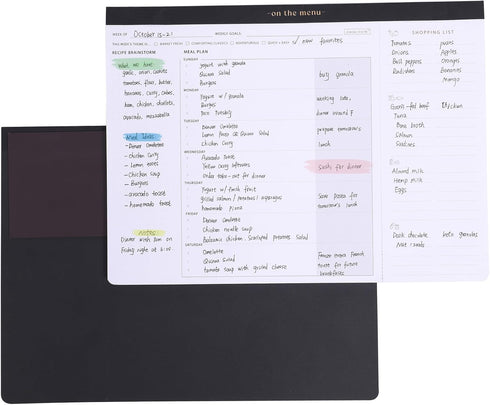 on the menu
WEEK OF October 15-21
WEEKLY GOALS:
THIS WEEK'S THEME IS... MARKET FRESH COMFORTING CLASSICS ADVENTUROUS QUICK + EASY ✓ new favorites
RECIPE BRAINSTORM
MEAL PLAN
What we have:
garlic, onion, carrots
tomatoes, flour, butter,
bananas, curry, cubes,
ham, chicken, charlotte,
avocado, mozzarella
Meal Ideas
- Dinner Omelette
- Chicken curry
- Lemon
- Chicken soup
- Burgers
- avocado toast
- homemade toast
Notes
Dinner with Pam on
Friday night at
SUNDAY
yogurt with granola
Quinoa Salad
Burgers
buy granola
MONDAY
Yogurt w/ granola
Burgers
Taco Tuesday
working late,
dinner around
TUESDAY
Dinner Omelette
Lemon Quinoa Salad
Chicken Curry
prepare tomorrow's
lunch
WEDNESDAY
Avocado toast
Yellow curry leftovers
Order take-out for dinner
Sushi for dinner
THURSDAY
Yogurt w/ fresh fruit
grilled salmon / potatoes / asparagus
homemade pizza
Save pizza for
tomorrow's lunch
FRIDAY
Dinner Omelette
Chicken noodle soup
Balsamic chicken, scalloped potatoes, Salad
SATURDAY
Omelette
Quinoa Salad
tomato soup with grilled cheese
Freeze French
toast for future
breakfasts
SHOPPING LIST
Tomatoes
Onions
Bell peppers
Radishes
Apples
Oranges
Bananas
Mango
Grass-fed beef
Chicken
Tuna
Bone broth
Salmon
Sardines
Almond milk
Hemp milk
Eggs
Dark chocolate
keto granola